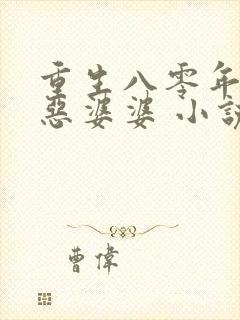 重生八零年
惡婆婆 小說
曹偉